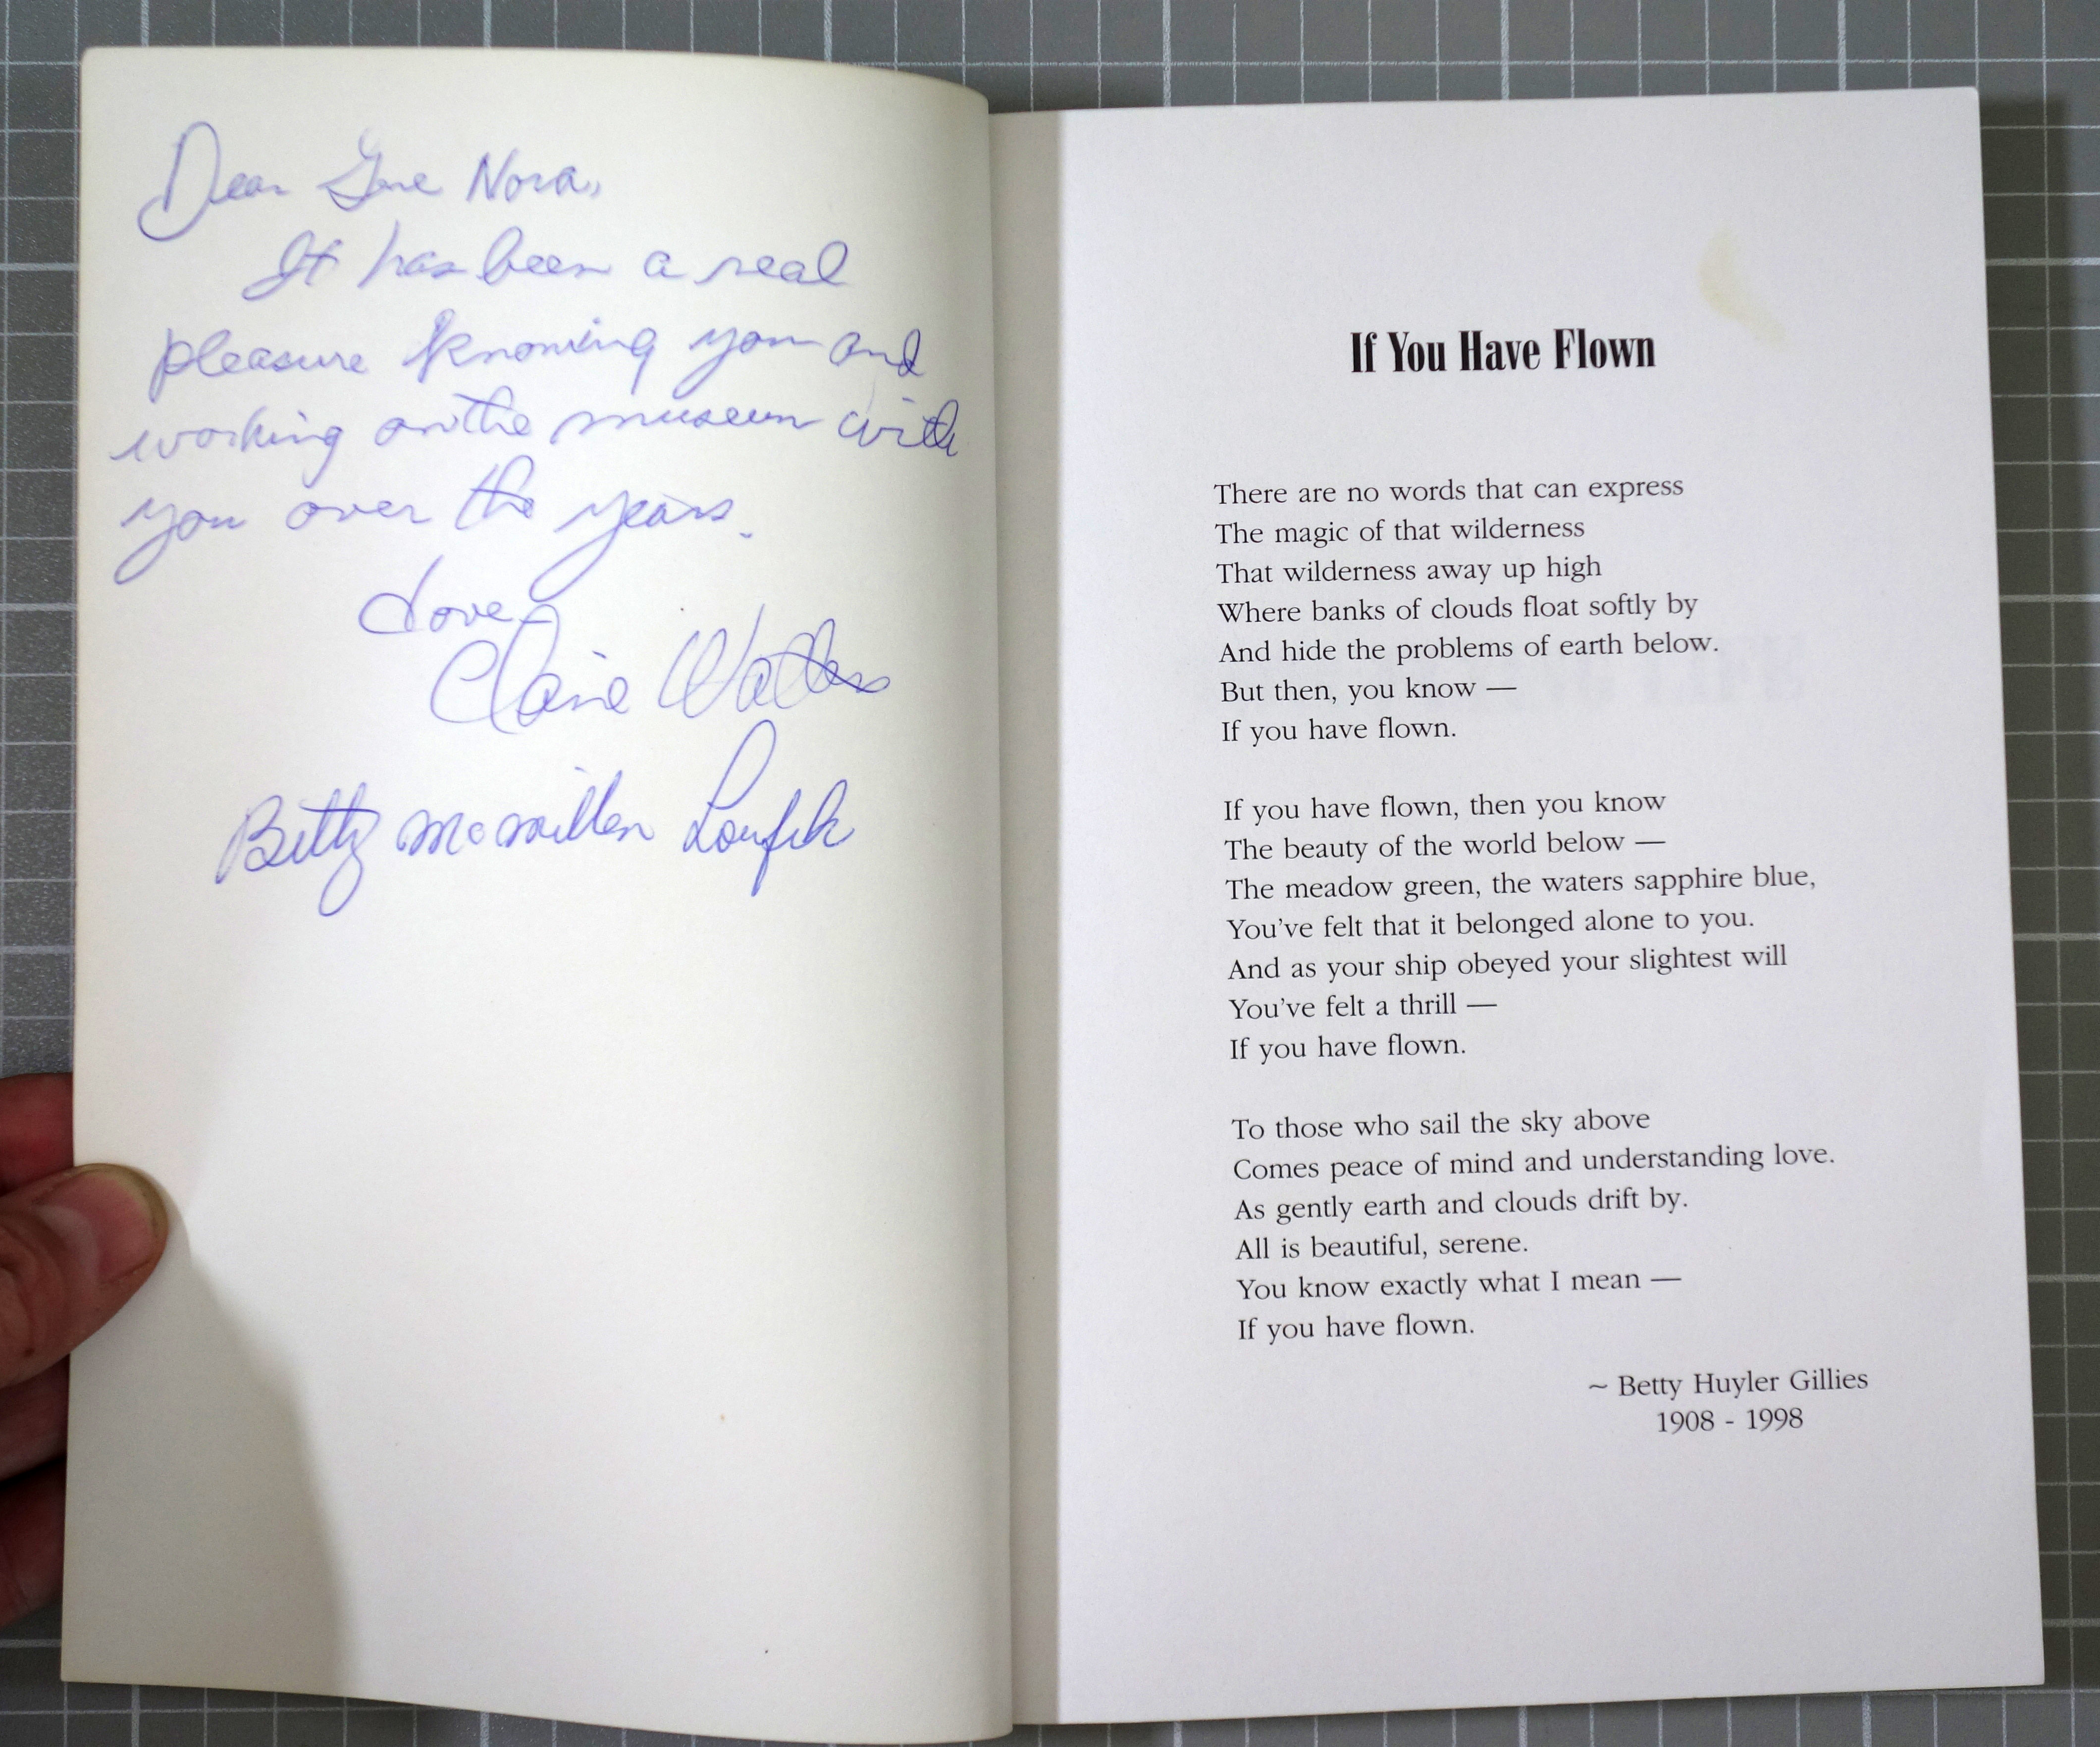 Dear Gene Nora,
It has been a real
pleasure knowing you and
working on the museum with
you over the years.
Love,
Claire Walters
Betty McMillen Loufek
If You Have Flown
There are no words that can express
The magic of that wilderness
That wilderness away up high
Where banks of clouds float softly by
And hide the problems of earth below.
But then, you know —
If you have flown.
If you have flown, then you know
The beauty of the world below —
The meadow green, the waters sapphire blue,
You've felt that it belonged alone to you.
And as your ship obeyed your slightest will
You've felt a thrill —
If you have flown.
To those who sail the sky above
Comes peace of mind and understanding love.
As gently earth and clouds drift by.
All is beautiful, serene.
You know exactly what I mean —
If you have flown.
~ Betty Huyler Gillies
1908 - 1998